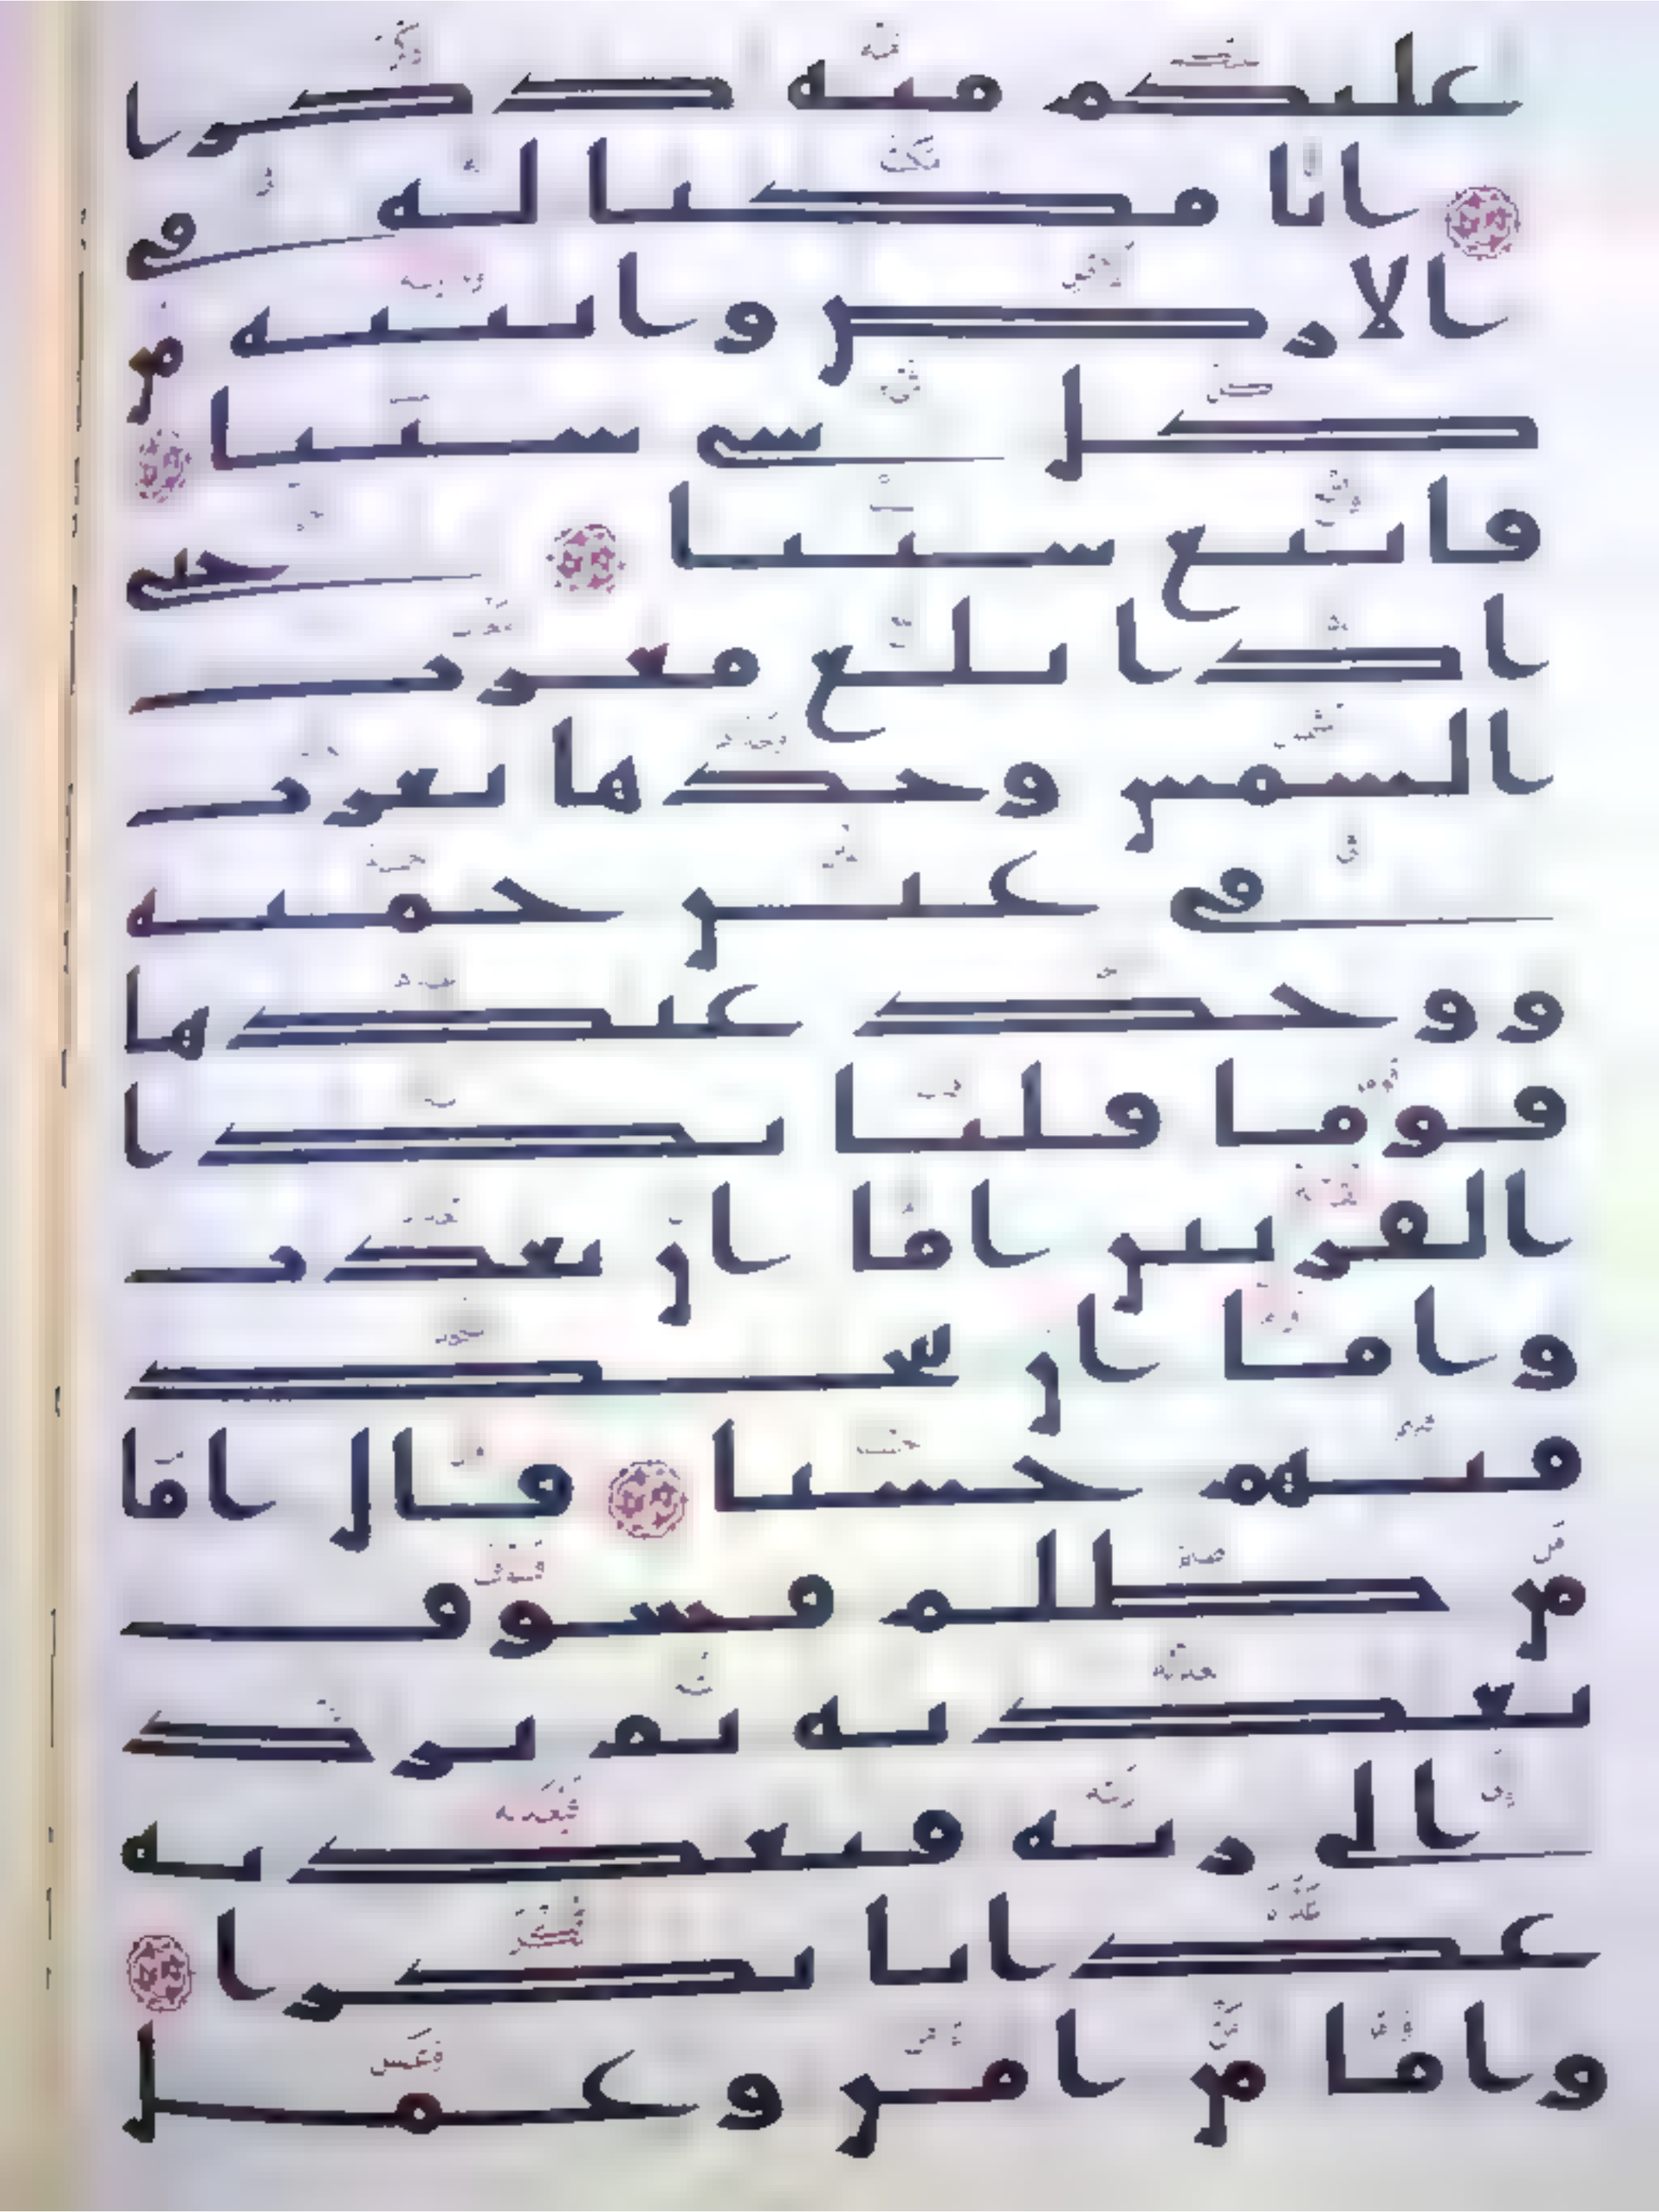 عليكم منه ذكرا
انا مكنا له في
الارض واتينه من
كل شي سببا
فاتبع سببا حتى
اذا بلغ مغرب
الشمس وجدها تغرب
في عين حمئة
ووجد عندها
قوما قلنا يذا
القرنين اما ان تعذب
واما ان تتخذ
فيهم حسنا قال اما
من ظلم فسوف
نعذبه ثم يرد
الى ربه فيعذبه
عذابا نكرا
واما من امن وعمل